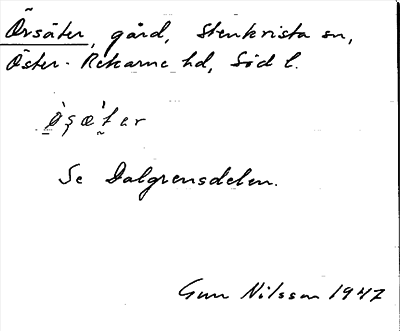 Örsäter, gård, Stenkvista sn,
Öster-Rekarne hd, Söd l.
ø̀ṣæ'ter
Se Dalgrensdelen.
Gun Nilsson 1947